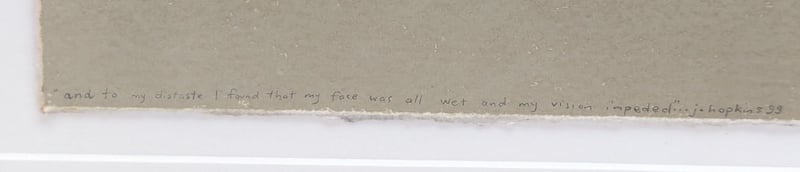 "and to my distaste I found that my face was all wet and my vision impeded"... j. hopkins 99